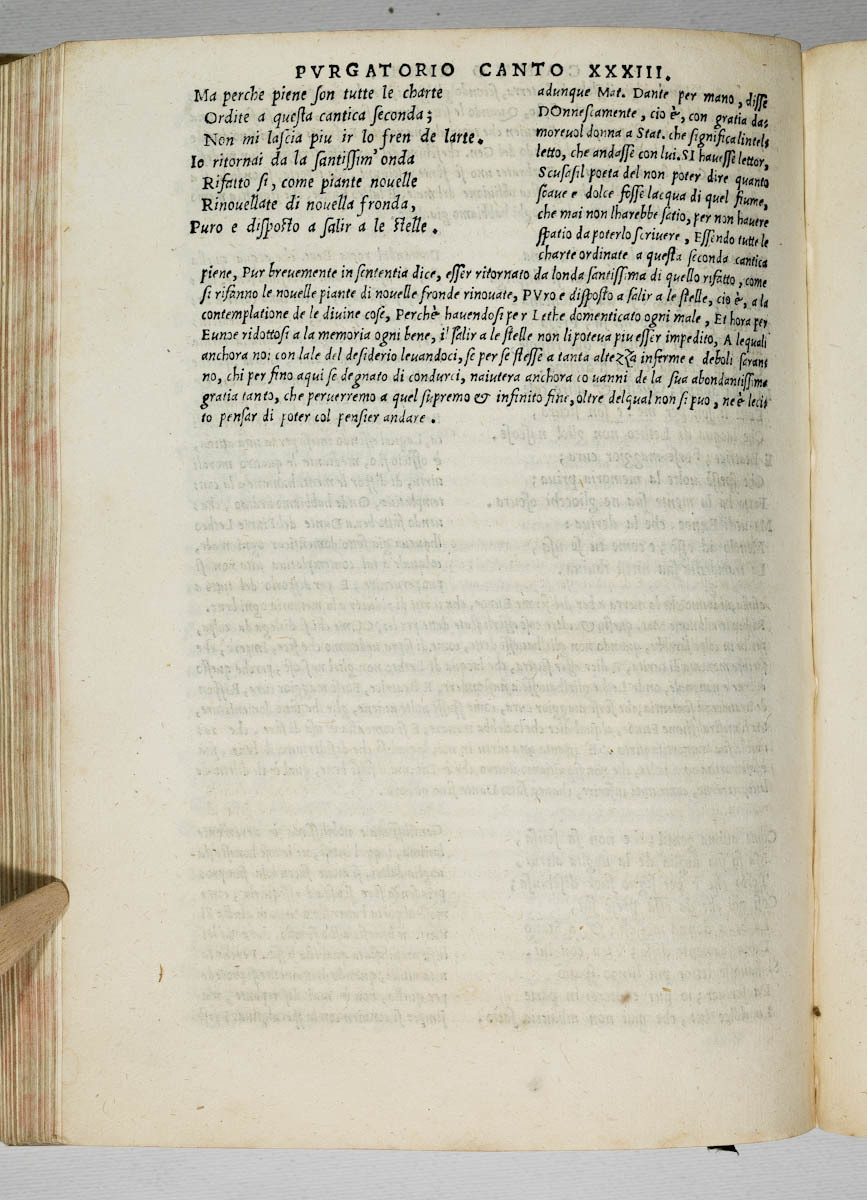 PVRGATORIO CANTO XXXIII.
Ma perche piene ſon tutte le charte
Ordite a queſta cantica ſeconda;
Non mi laſcia piu ir lo fren de larte.
Io ritornai da la ſantiſſim' onda
Rifatto ſi, come piante nouelle
Rinouellate di nouella fronda,
Puro e diſpoſto a ſalir a le ſtelle.
adunque Mat. Dante per mano, diſſe
DOnneſcamente, cio è, con gratia da-
moreuol donna a Stat. che ſignifica lintel-
letto, che andaſſe con lui. SI haueſſe lettor,
Scuſeſil poeta del non poter dire quanto
ſoaue e dolce foſſe lacqua di quel fiume,
che mai non lharebbe ſatio, per non hauere
ſpatio da poterlo ſcriuere, Eſſendo tutte le
charte ordinate a queſta ſeconda cantica
piene, Pur breuemente in ſententia dice, eſſer ritornato da londa ſantiſſima di quello rifatto, come
ſi rifanno le nouelle piante di nouelle fronde rinouate, PVro e diſpoſto a ſalir a le ſtelle, cio è, a la
contemplatione de le diuine coſe, Perchè hauendoſi per Lethe domenticato ogni male, Et hora per
Eunoe ridottoſi a la memoria ogni bene, il ſalir a le ſtelle non li poteua piu eſſer impedito, A lequali
anchora noi con lale del deſiderio leuandoci, ſe per ſe ſteſſe a tanta altezza inferme e deboli ſaran-
no, chi per fino aqui ſe degnato di condurci, naiutera anchora co uanni de la ſua abondantiſſima
gratia tanto, che peruerremo a quel ſupremo & infinito fine, oltre delqual non ſi puo, ne è leci-
to penſar di poter col penſier andare.